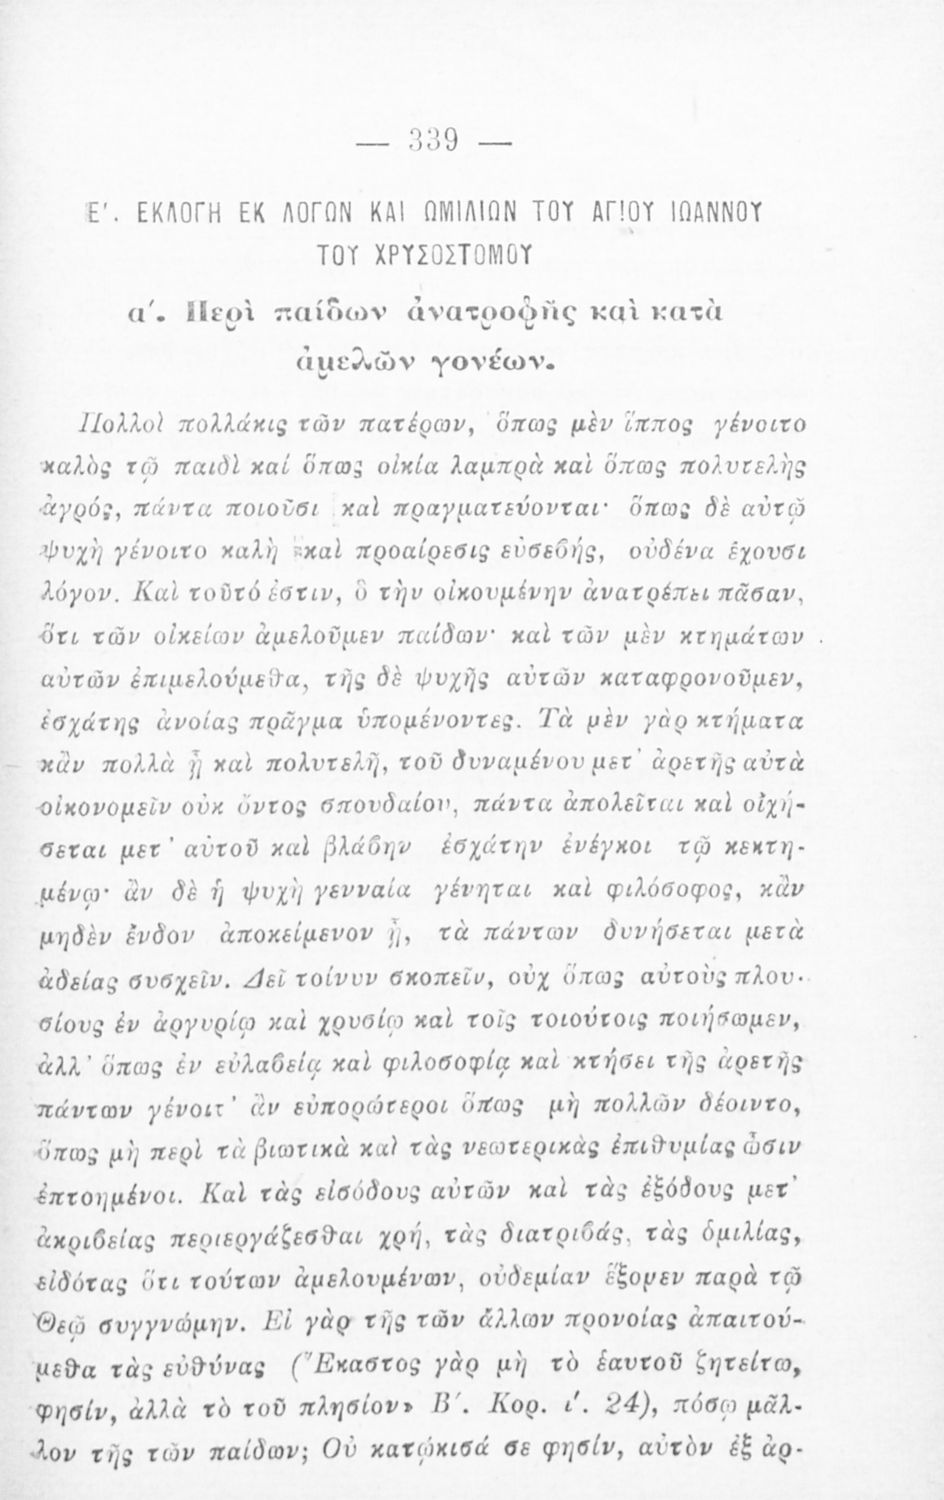 — 339 —
Ε'. ΕΚΛΟΓΗ ΕΚ ΛΟΓΩΝ ΚΑΙ ΩΜΙΛΙΩΝ ΤΟΥ ΑΓΙΟΥ ΙΩΑΝΝΟΥ
ΤΟΥ ΧΡΥΣΟΣΤΟΜΟΥ
α'. Περὶ παίδων ἀνατροφῆς καὶ κατὰ
ἀμελῶν γονέων.
Πολλοὶ πολλάκις τῶν πατέρων, ὅπως μὲν ἵππος γένοιτο
καλὸς τῷ παιδὶ καί ὅπως οἰκία λαμπρὰ καὶ ὅπως πολυτελὴς
ἀγρός, πάντα ποιοῦσι καὶ πραγματεύονται· ὅπως δὲ αὐτῷ
ψυχὴ γένοιτο καλὴ καὶ προαίρεσις εὐσεβής, οὐδένα ἔχουσι
λόγον. Καὶ τοῦτό ἐστιν, ὃ τὴν οἰκουμένην ἀνατρέπει πᾶσαν,
ὅτι τῶν οἰκείων ἀμελοῦμεν παίδων· καὶ τῶν μὲν κτημάτων
αὐτῶν ἐπιμελούμεθα, τῆς δὲ ψυχῆς αὐτῶν καταφρονοῦμεν,
ἐσχάτης ἀνοίας πρᾶγμα ὑπομένοντες. Τὰ μὲν γὰρ κτήματα
κἂν πολλὰ ᾖ καὶ πολυτελῆ, τοῦ δυναμένου μετ' ἀρετῆς αὐτὰ
οἰκονομεῖν οὐκ ὄντος σπουδαίου, πάντα ἀπολεῖται καὶ οἰχή-
σεται μετ' αὐτοῦ καὶ βλάβην ἐσχάτην ἐνέγκοι τῷ κεκτη-
μένῳ· ἂν δὲ ἡ ψυχὴ γενναία γένηται καὶ φιλόσοφος, κἂν
μηδὲν ἔνδον ἀποκείμενον ᾖ, τὰ πάντων δυνήσεται μετὰ
ἀδείας συσχεῖν. Δεῖ τοίνυν σκοπεῖν, οὐχ ὅπως αὐτοὺς πλου-
σίους ἐν ἀργυρίῳ καὶ χρυσίῳ καὶ τοῖς τοιούτοις ποιήσωμεν,
ἀλλ' ὅπως ἐν εὐλαβείᾳ καὶ φιλοσοφίᾳ καὶ κτήσει τῆς ἀρετῆς
πάντων γένοιτ' ἂν εὐπορώτεροι ὅπως μὴ πολλῶν δέοιντο,
ὅπως μὴ περὶ τὰ βιωτικὰ καὶ τὰς νεωτερικὰς ἐπιθυμίας ὦσιν
ἐπτοημένοι. Καὶ τὰς εἰσόδους αὐτῶν καὶ τὰς ἐξόδους μετ'
ἀκριβείας περιεργάζεσθαι χρή, τὰς διατριβάς, τὰς ὁμιλίας,
εἰδότας ὅτι τούτων ἀμελουμένων, οὐδεμίαν ἕξομεν παρὰ τῷ
Θεῷ συγγνώμην. Εἰ γὰρ τῆς τῶν ἄλλων προνοίας ἀπαιτού-
μεθα τὰς εὐθύνας (Ἕκαστος γὰρ μὴ τὸ ἑαυτοῦ ζητείτω,
φησίν, ἀλλὰ τὸ τοῦ πλησίον» Β'. Κορ. ί. 24), πόσῳ μᾶλ-
λον τῆς τῶν παίδων; Οὐ κατῴκισά σε φησίν, αὐτὸν ἐξ ἀρ-